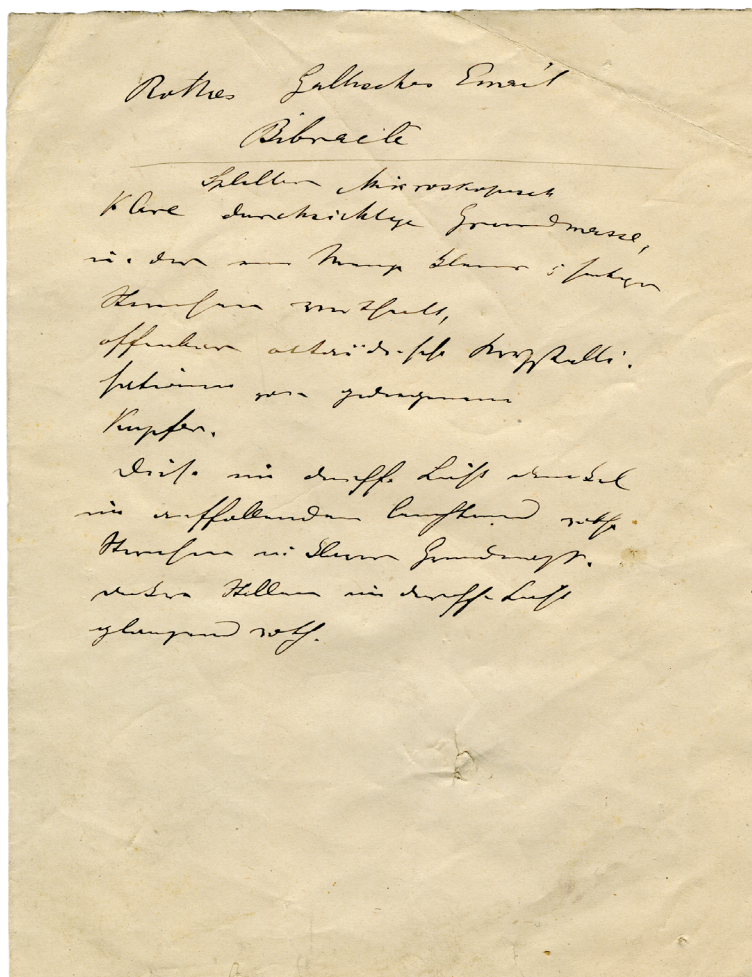 Rothes Gallisches Email
Bibracte
Splitter Mikroskopisch
Klare durchsichtige Grundmasse,
in der eine Menge kleiner
Sternchen vertheilt,
offenbar octaëdrische Krystalli-
sationen von gediegenem
Kupfer.
Diese im durchf. Licht dunkel
im auffallenden leuchtend rothe
Sternchen in klarer Grundmasse.
andere Stellen im durchf. Licht
glänzend roth.